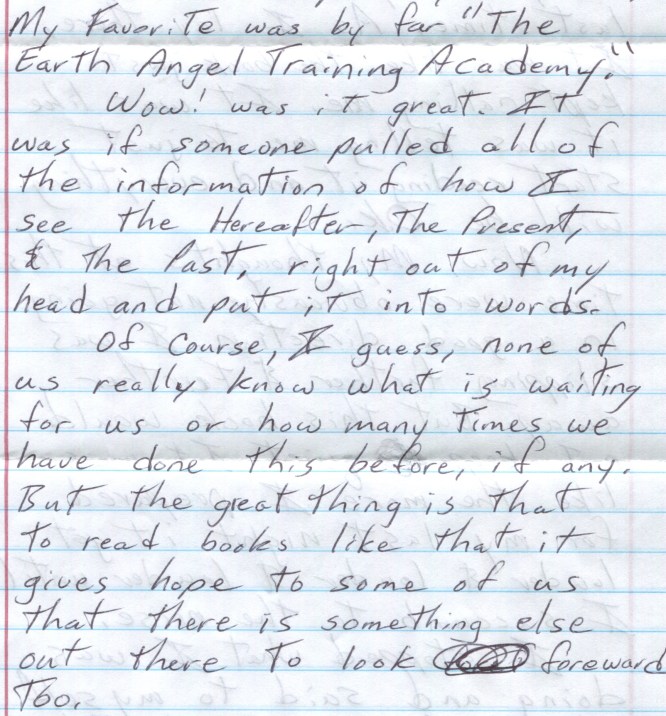 My Favorite was by far "The
Earth Angel Training Academy."
Wow! was it great. It
was if someone pulled all of
the information of how I
see the Hereafter, The Present,
& the Past, right out of my
head and put it into words.
Of Course, I guess, none of
us really know what is waiting
for us or how many Times we
have done this before, if any.
But the great thing is that
to read books like that it
gives hope to some of us
that there is something else
out there to look foreward
Too.